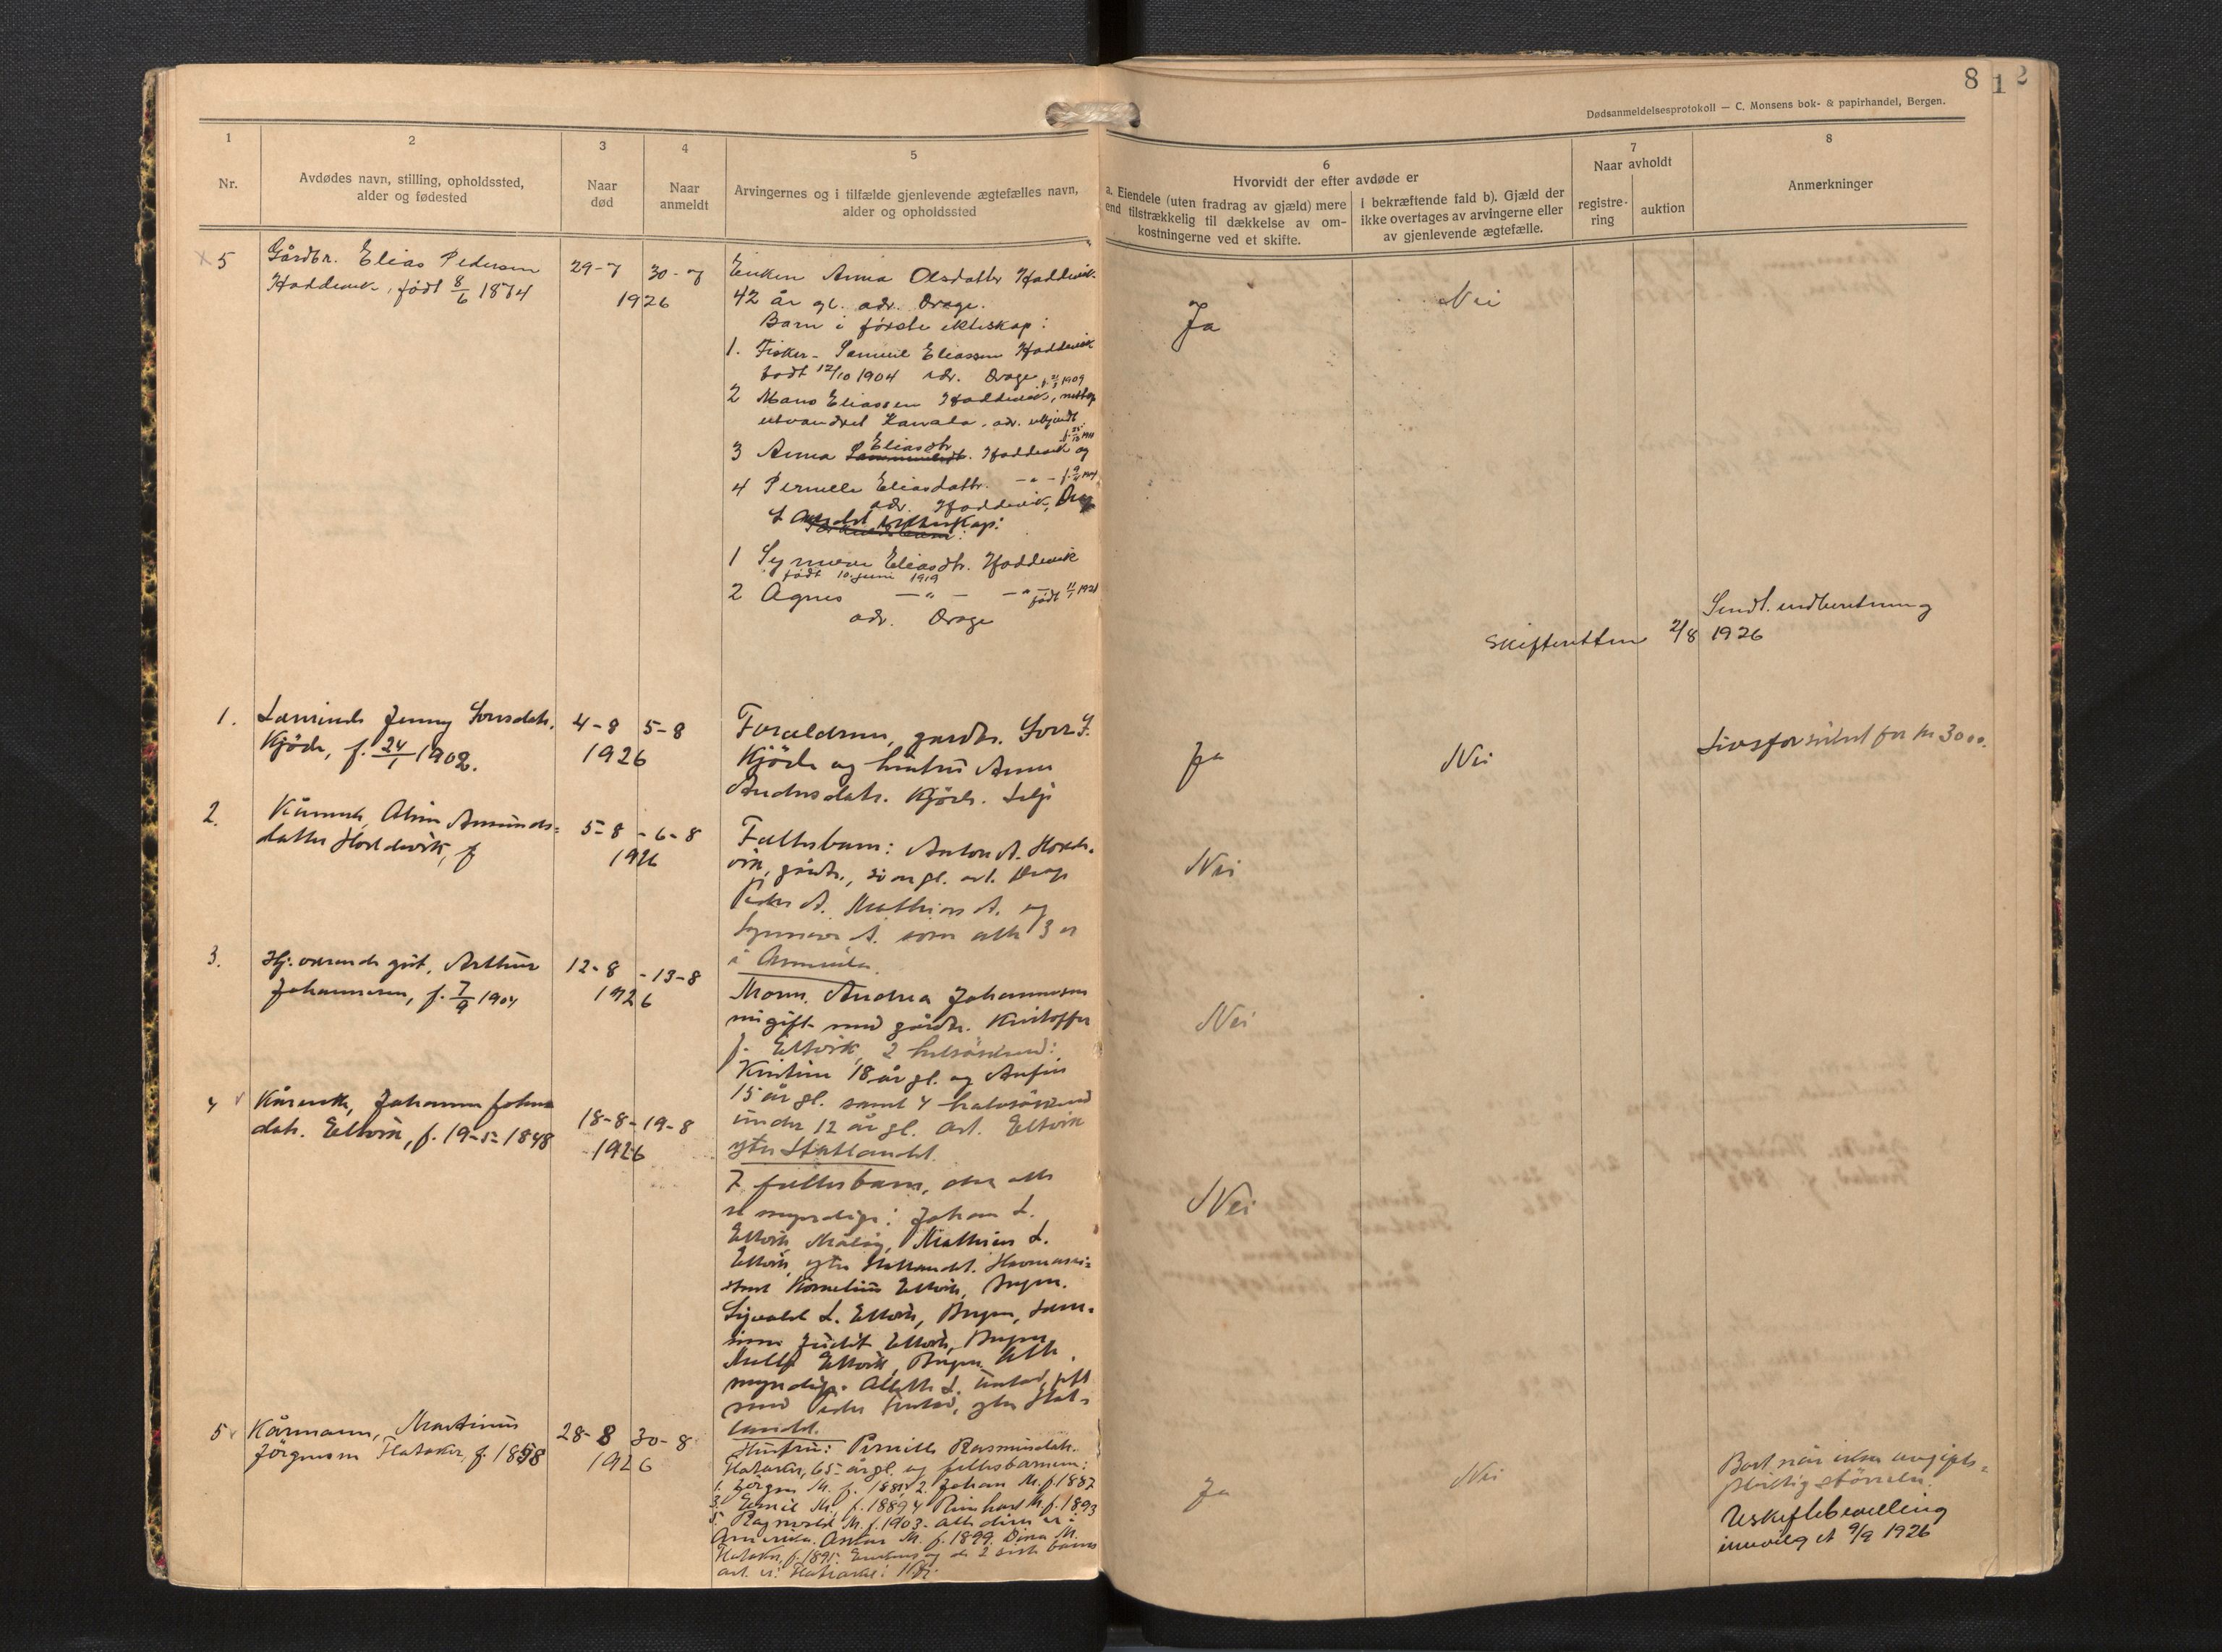 8 1 2
Dødsanmeldelsesprotokoll — C. Monsens bok- & papirhandel, Bergen.
1
2
3
4
5
6
7
8
Nr.
Avdødes navn, stilling, opholdssted,
alder og fødested
Naar
død
Naar
anmeldt
Arvingernes og i tilfælde gjenlevende ægtefælles navn,
alder og opholdssted
Hvorvidt der efter avdøde er
a. Eiendele (uten fradrag av gjæld) mere
end tilstrækkelig til dækkelse av om-
kostningerne ved et skifte.
I bekræftende fald b). Gjæld der
ikke overtages av arvingerne eller
av gjenlevende ægtefælle.
Naar avholdt
registre-
ring
auktion
Anmerkninger
5
Gårdbr. Elias Pedersen
Hoddevik, født 8/6 1874
29-7
30-7
1926
Enken Anna Olsdatter Hoddevik
42 år gl. adr. Drage.
Barn i første ekteskap:
1. Fisker - Samuel Eliassen Hoddevik
født 12/10 1904 adr. Drage
2 Mons Eliassen Hoddevik, 1909
utvandret Kanada, adr. ukjendt
3 Anna Eliasdtr. Hoddevik og
4 Pernelle Eliasdattr. — " —
adr. Hoddevik, Drage
ekteskap:
1 Synneve Eliasdtr. Hoddevik
født 10. juni 1919
2 Agnes — " — — " — født 1921
adr. Drage
Ja
Nei
Sendt. indberetning
Skifteretten 2/8 1926
1.
Jenny Sorsdatr.
Kjøde, f. 24/1 1902.
4-8
5-8
1926
Foreldrene, gardbr.
Kjøde og hustru Anna
Andersdatr. Kjøde. Selje
Ja
Nei
Livsforsikret for kr 3000.
2.
Kårenke, Alina Amunds-
datter Hoddevik, f
5-8 - 6-8
1926
Fellesbarn: Anton A. Hodde-
vik, gårdbr., år gl. adr. Drage
Peder A. Mathias A. og
Synneve A. som alle 3 er
i Amerika.
Nei
3.
gut, Arthur
Johannesen, f. 7/9 1904
12-8 - 13-8
1926
Moren Andrea Johannesen
nu gift med gårdbr. Kristoffer
J. Eltvik, 2 helsøskend:
Kristine 18 år gl. og
15 år gl. samt 4 halvsøskend
under 12 år gl. adr. Eltvik
ytre Statlandet.
Nei
4
Kårenke, Johanne
datr. Eltvik, f. 19-5-1848
18-8 - 19-8
1926
7 fellesbarn, der alle
er myndige: Johan L.
Eltvik, Måløy, Mathias L.
Eltvik, ytre Statlandet.
Kornelius Eltvik, Bergen.
Sigvald L. Eltvik, Bergen,
Judit Eltvik, Bergen,
Eltvik, Bergen. Alle
myndige. L. gift
med Peder ytre Stat-
landet.
Nei
5
Kårmann, Martinus
Jørgensen Hatøker, f. 1858
28-8 30-8
1926
Hustru: Pernille Rasmusdatr.
65 år gl. og fellesbarnene:
1. Jørgen M. f. 2. Johan M. f. 1887
3. Emil M. f. 1889 4 M. f. 1893
5. Ragnvald M. f. 1903 - alle disse er i
Amerika. M. f. 1899. Dina M.
f. 1895. og de 2 siste barns
adr. er:
Ja
Nei
Boet når ikke avgifts-
pliktig størrelse.
Uskiftebevilling
innvilget 9/9 1926